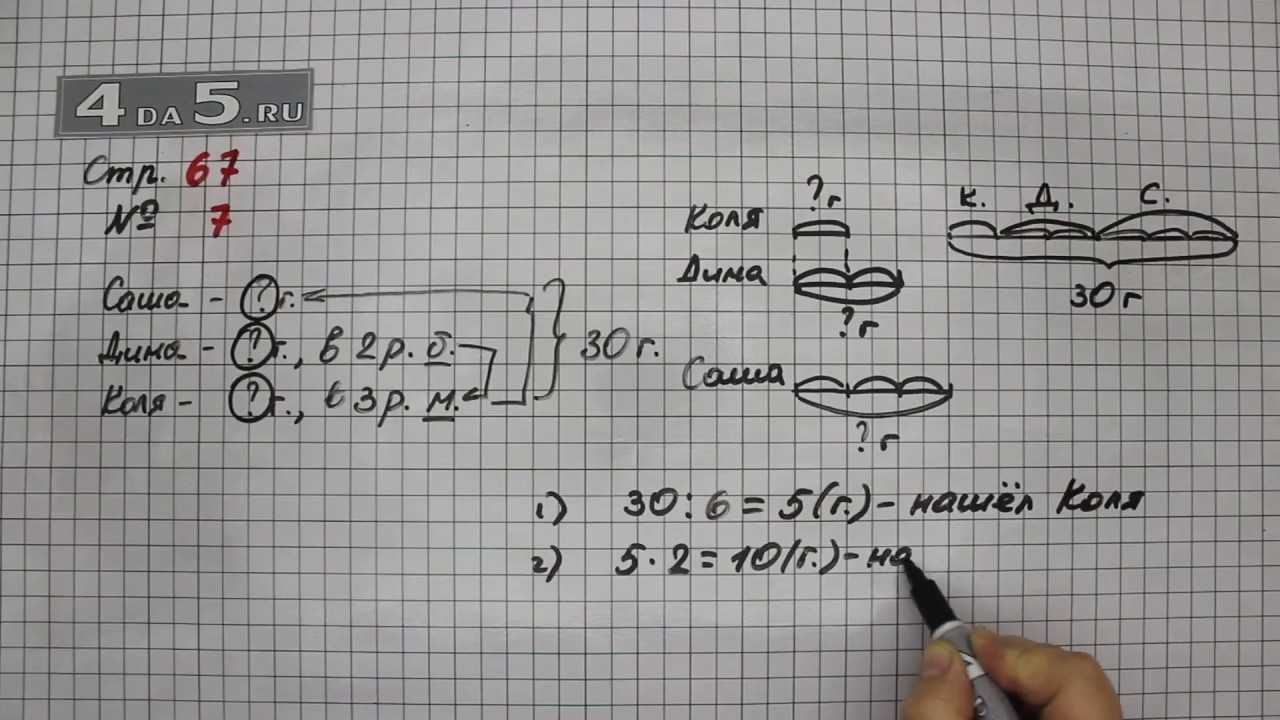 4DA5.RU
Стр. 67
№ 7
Саша - ?г.
Дима - ?г., в 2 р. б.
Коля - ?г., в 3 р. м.
30 г.
Коля ? г
Дима ? г
Саша ? г
К. Д. С.
30 г
1) 30 : 6 = 5 (г.) - нашёл Коля
2) 5 · 2 = 10 (г.) - на